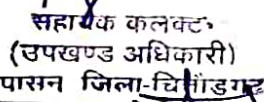 सहायक कलक्टर
(उपखण्ड अधिकारी)
पासन जिला-चित्तौडगढ